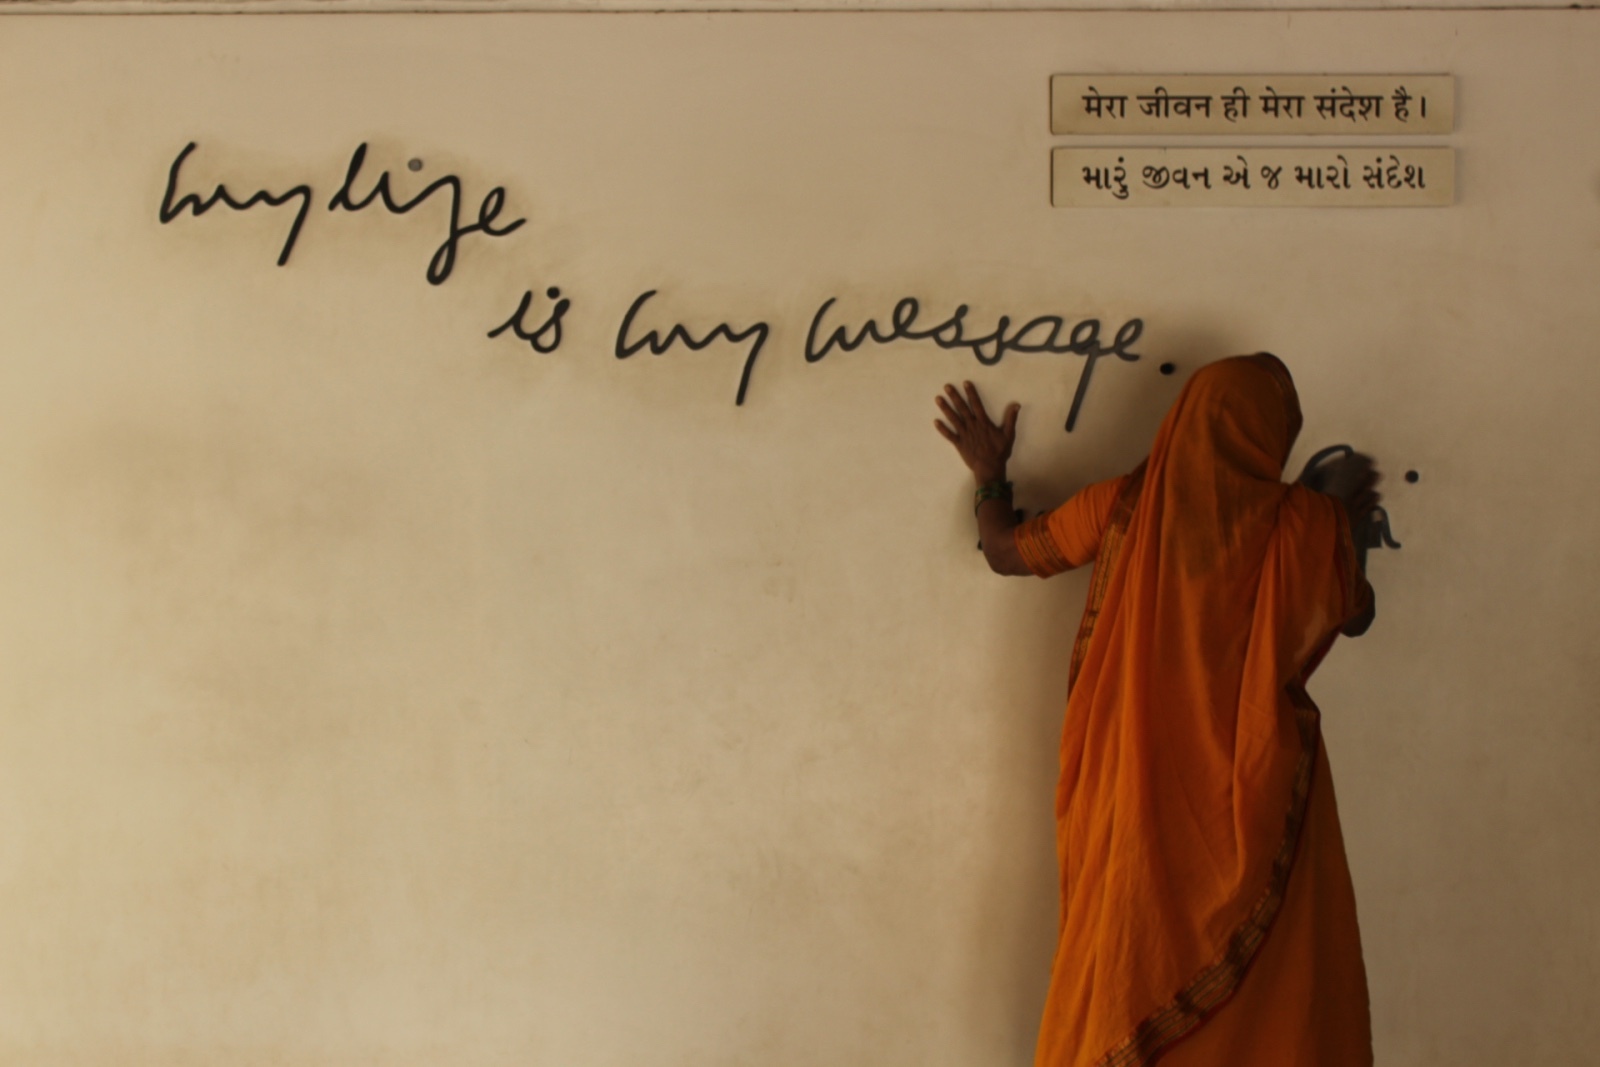 my life
is my message.
मेरा जीवन ही मेरा संदेश है।
મારું જીવન એ જ મારો સંદેશ